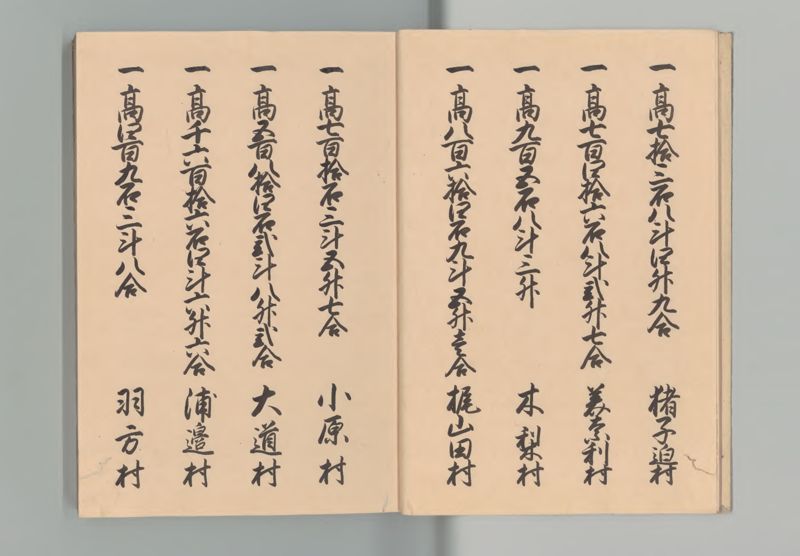 一高七拾三石八斗四升九合 猪子迫村
一高七百四拾六石八斗弐升七合 美禿利村
一高九百五石八斗三升 木梨村
一高八百六拾四石九斗五升壱合 梶山田村
一高七百拾石三斗五升七合 小原村
一高五百八拾四石弐斗八升弐合 大道村
一高千六百拾六石四斗六升六合 浦邉村
一高四百九石三斗八合 羽方村